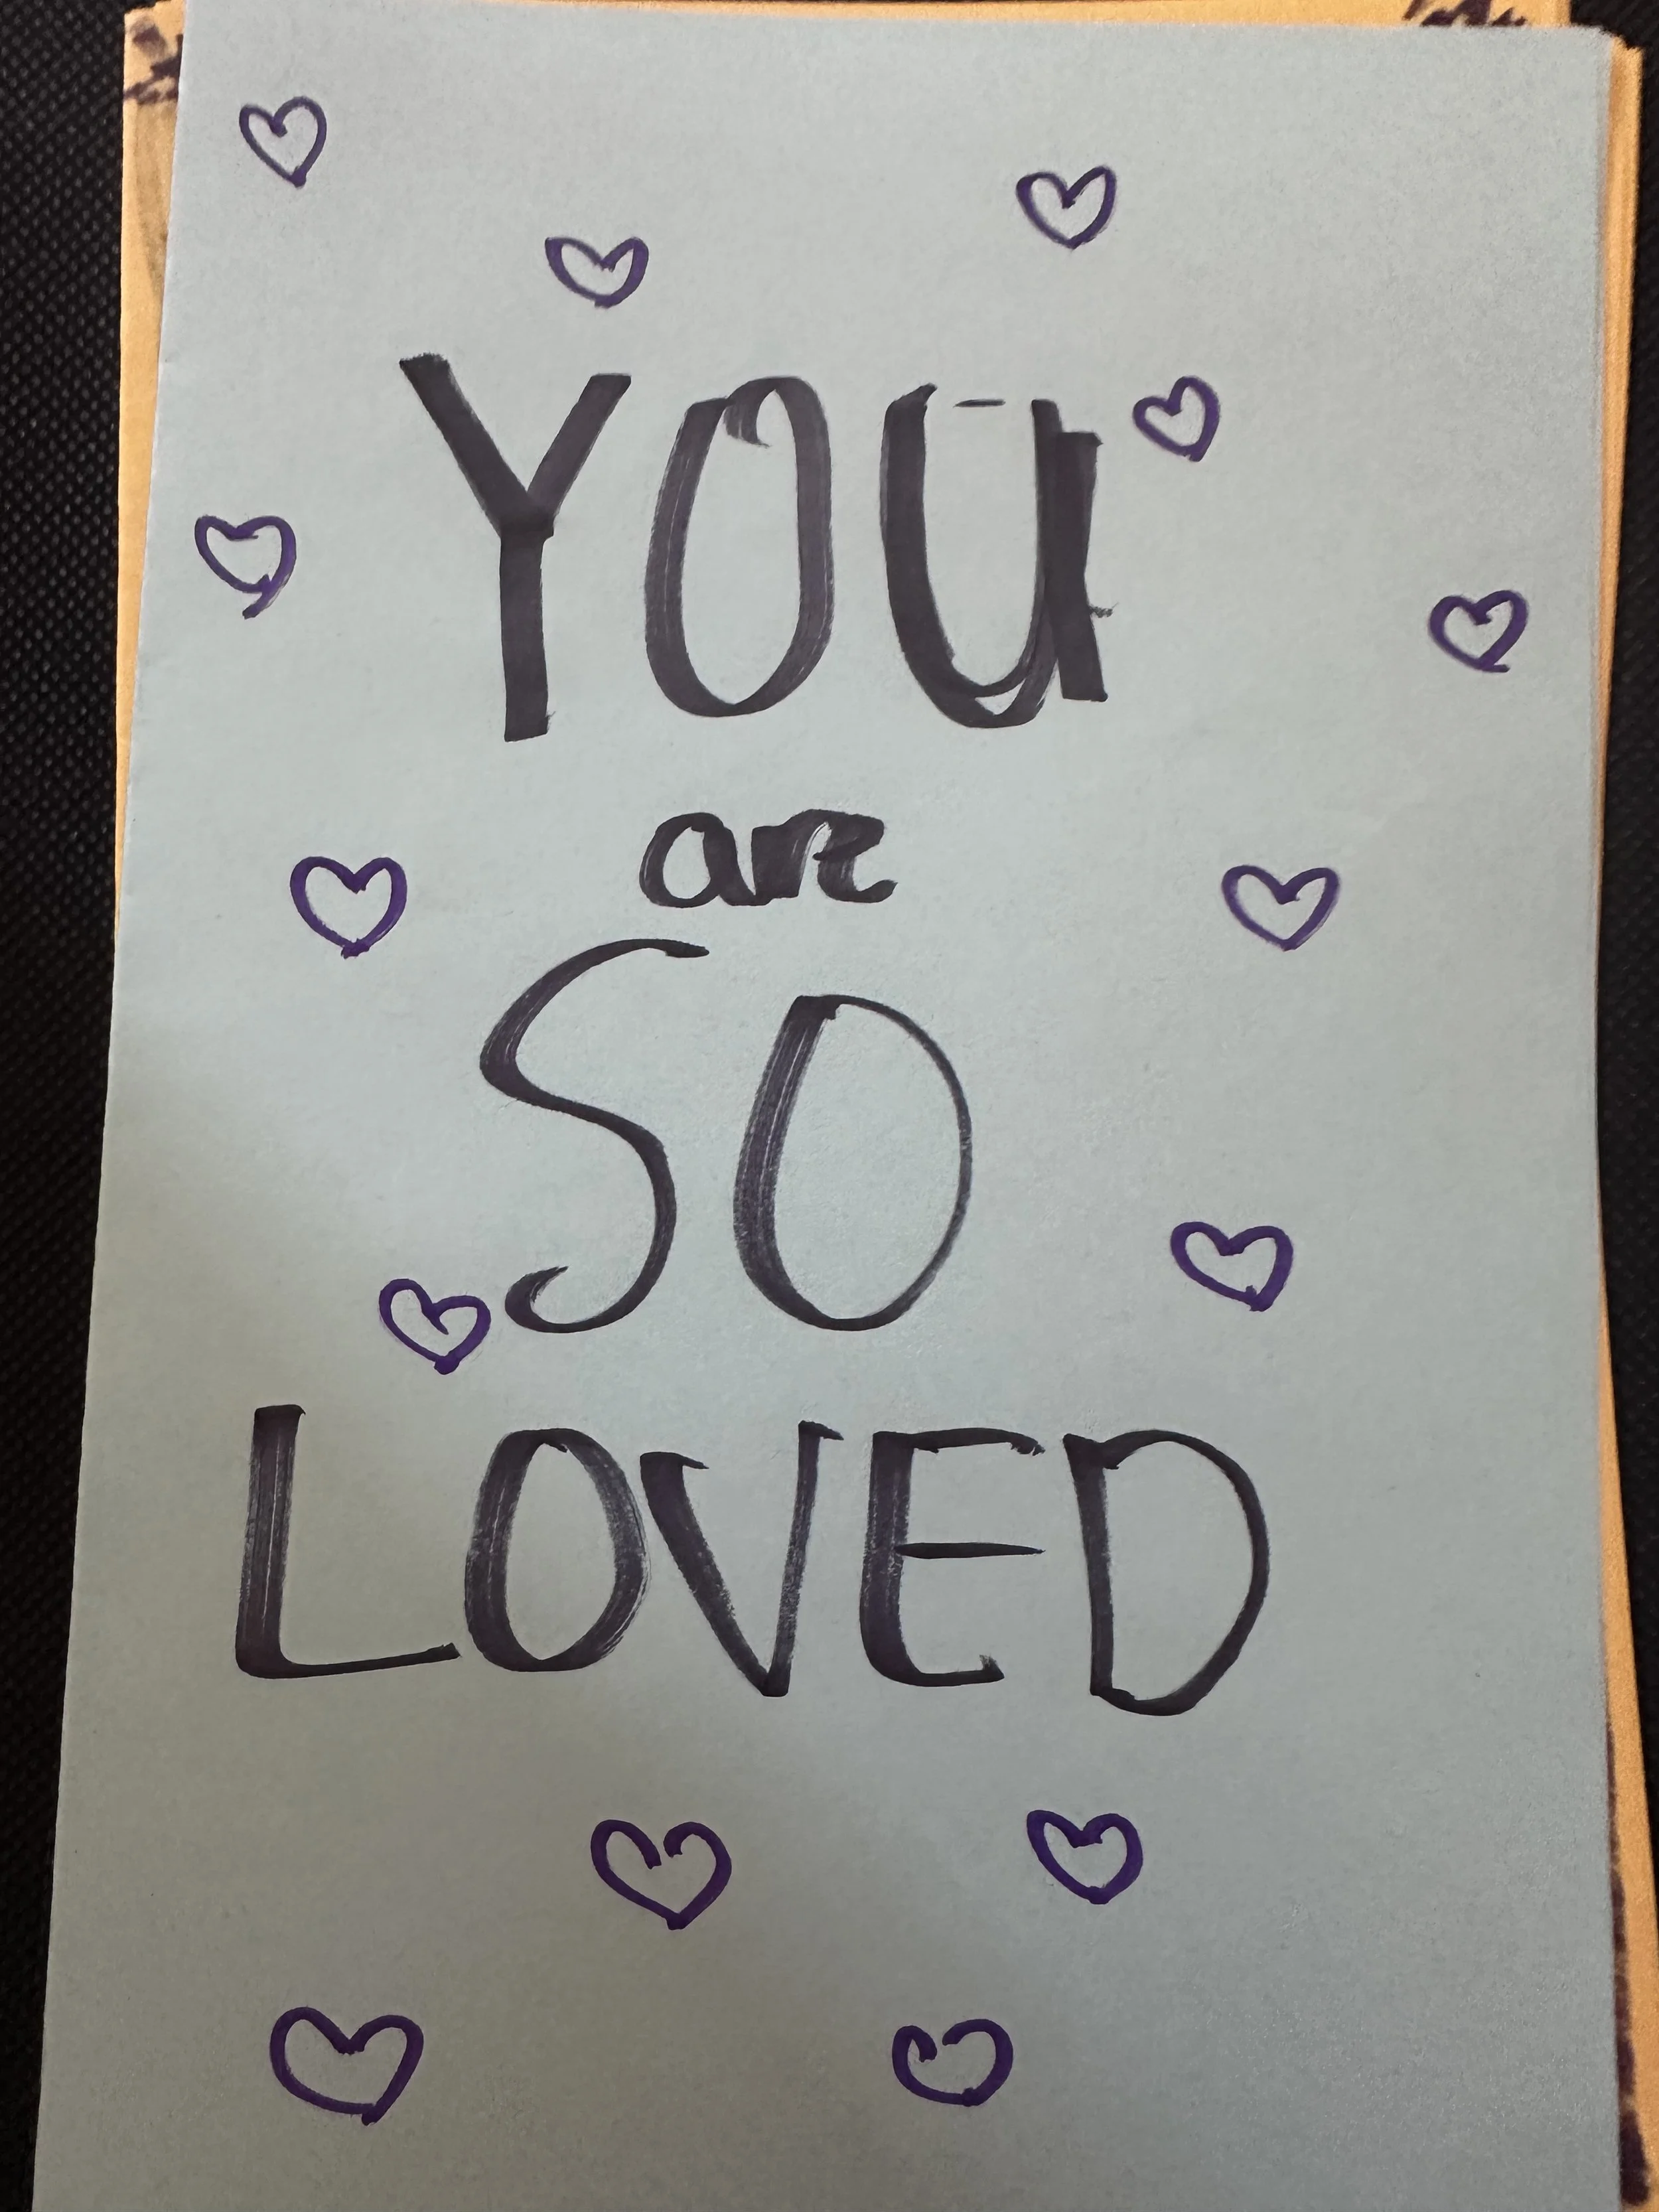 YOU
are
SO
LOVED